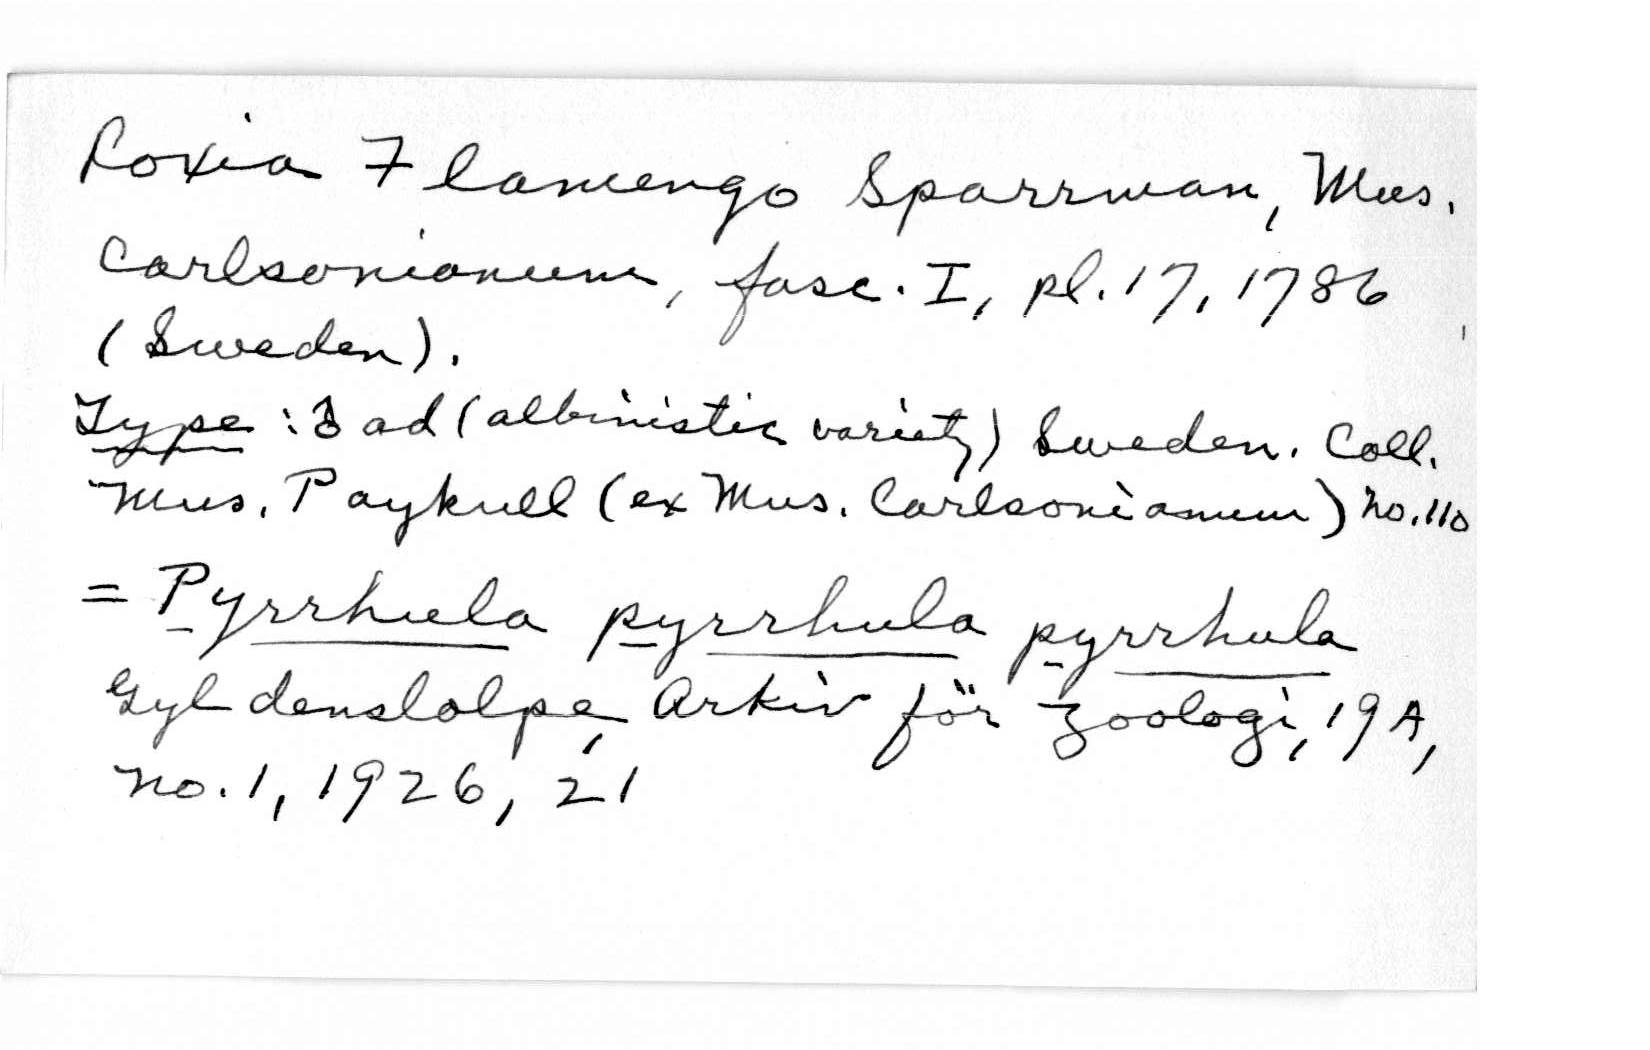 Loxia Flamengo Sparrman, Mus.
Carlsonianum, fasc. I, pl. 17, 1786
(Sweden).
Type : ♂ ad (albinistic variety) Sweden. Coll.
Mus. Paykull (ex Mus. Carlsonianum) no. 110
= Pyrrhula pyrrhula pyrrhula
Gyldenstolpe, Arkiv för Zoologi, 19A,
no. 1, 1926, 21